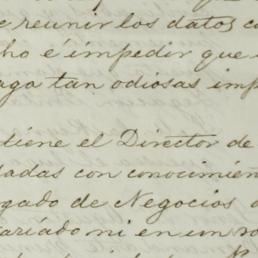 e reunir los datos co
ho é impedir que
aga tan odiosas imp
tiene el Director de
dadas con conocimien
gado de Negocios
ariado ni en un so